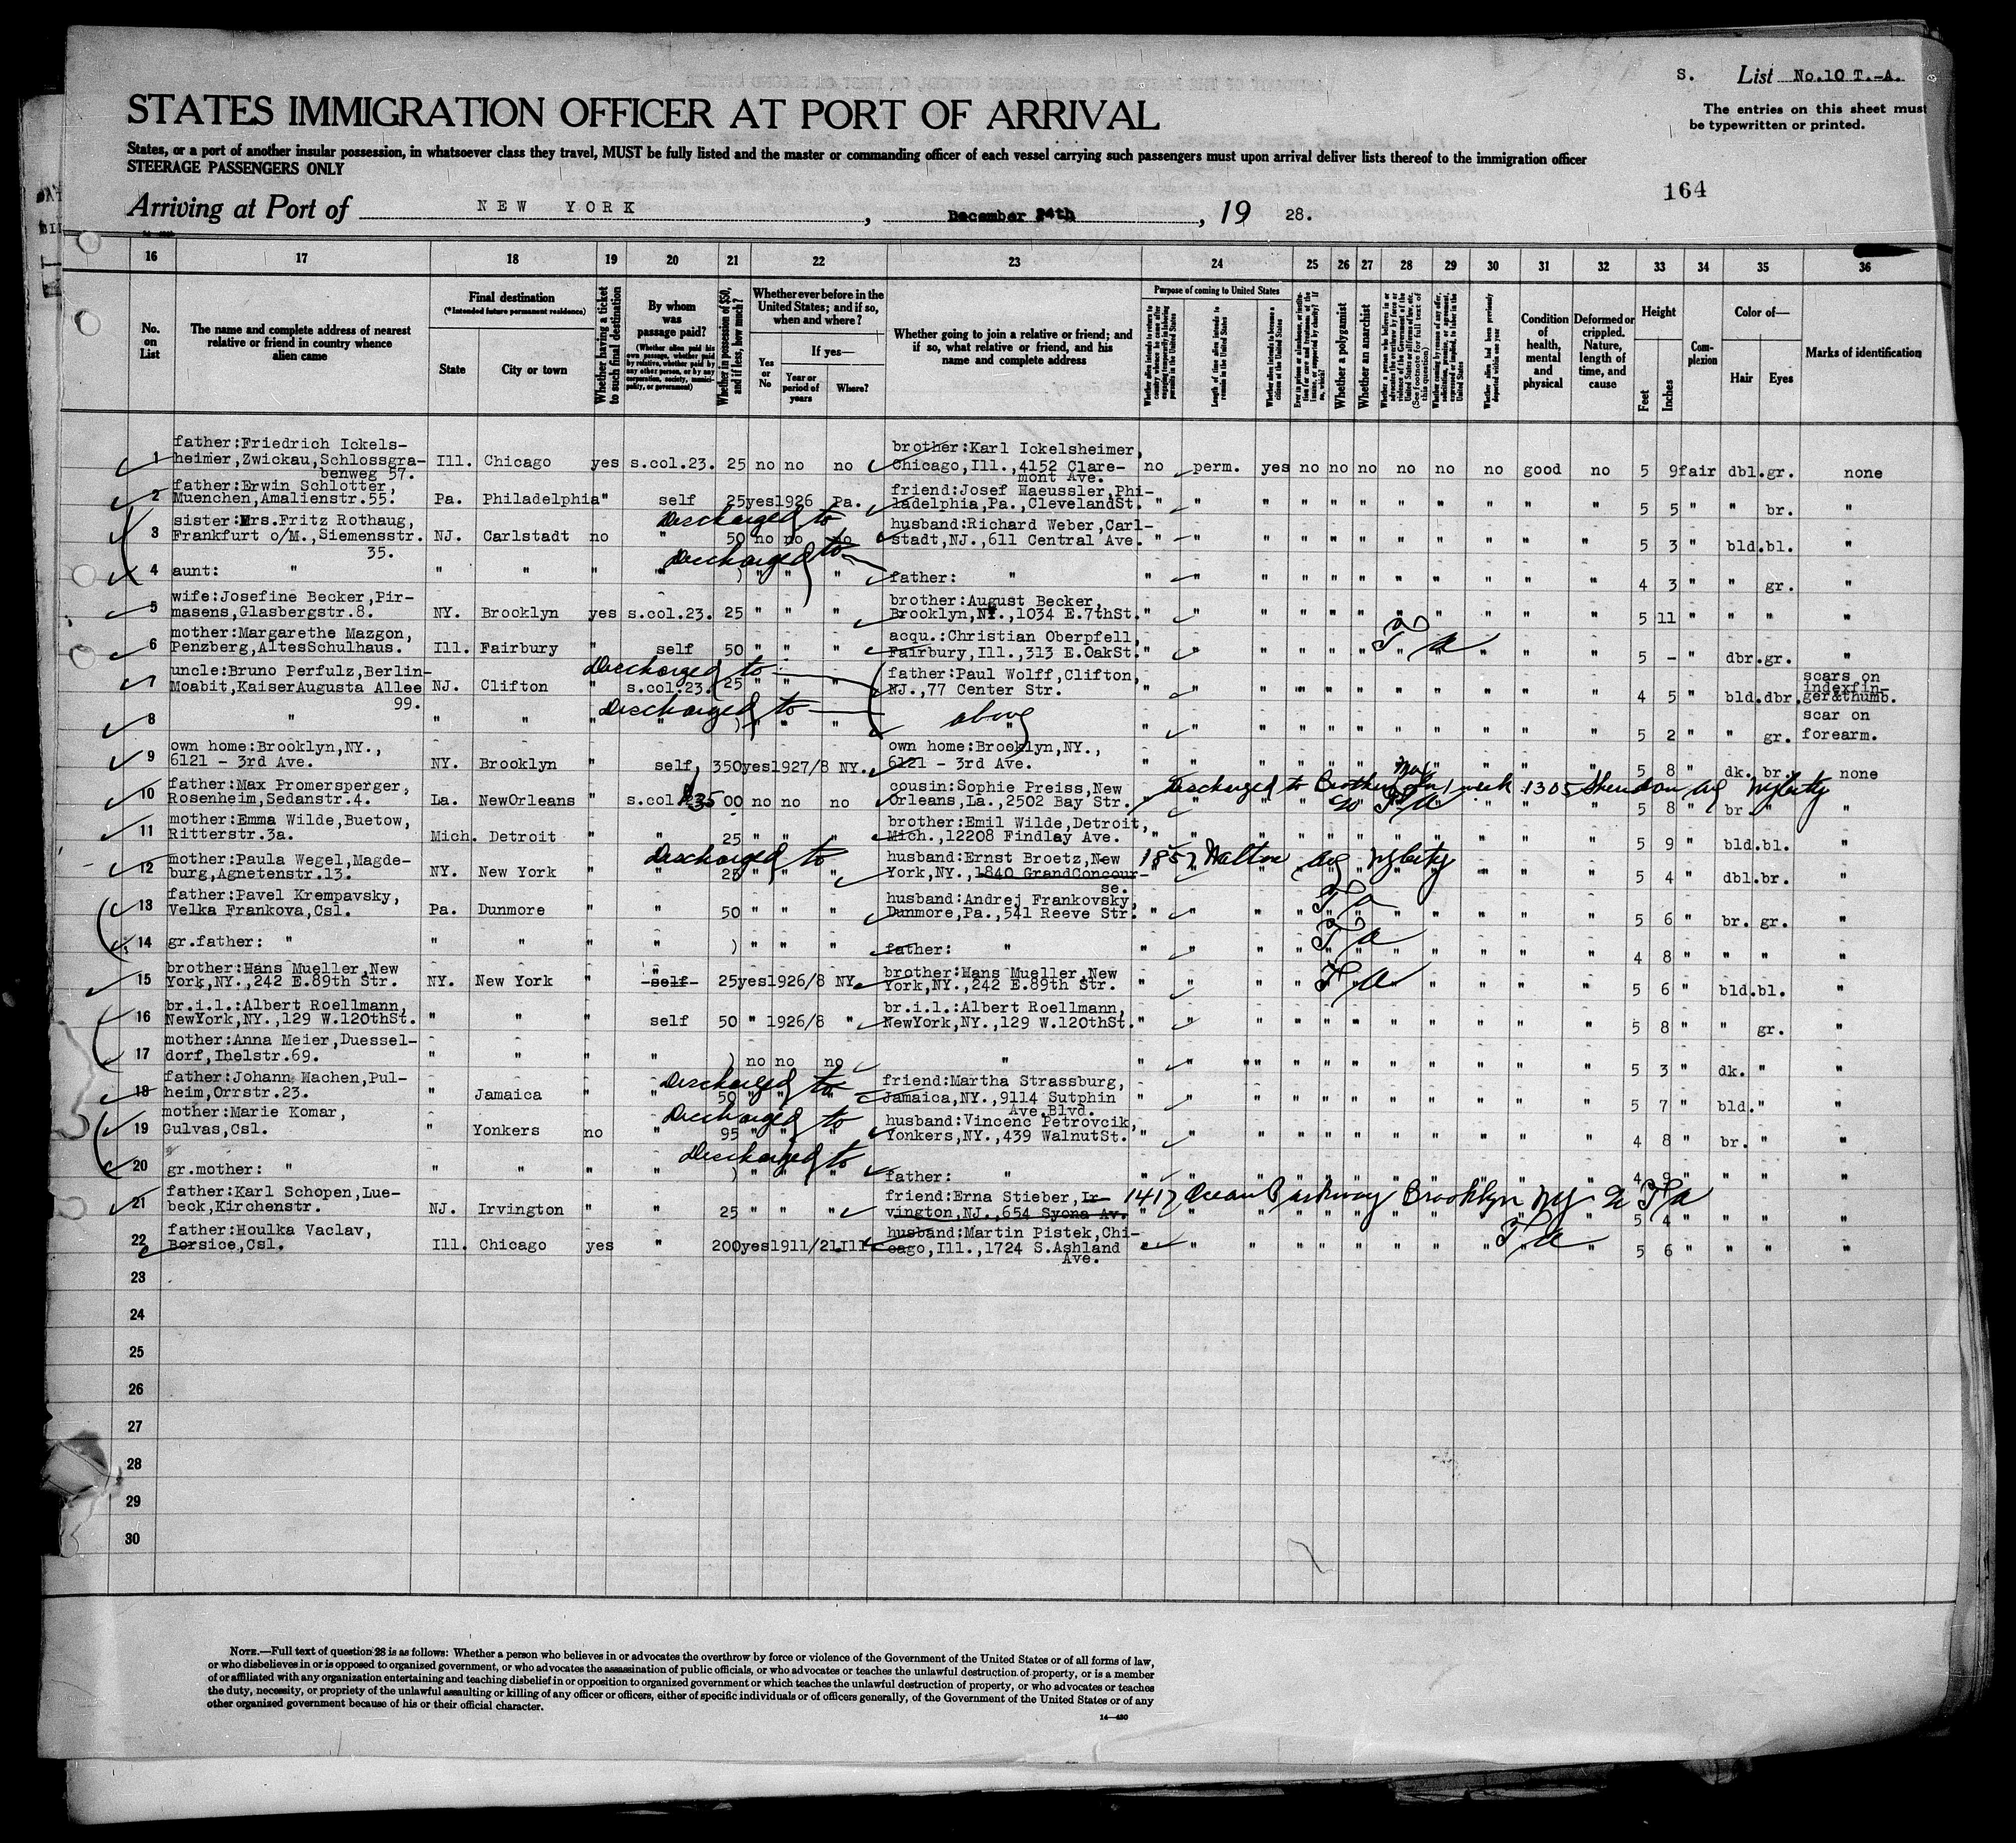 S. List No.10 T.-A.
STATES IMMIGRATION OFFICER AT PORT OF ARRIVAL
The entries on this sheet must
be typewritten or printed.
States, or a port of another insular possession, in whatsoever class they travel, MUST be fully listed and the master or commanding officer of each vessel carrying such passengers must upon arrival deliver lists thereof to the immigration officer
STEERAGE PASSENGERS ONLY
164
Arriving at Port of NEW YORK, December 24th, 19 28.
16 17 18 19 20 21 22 23 24 25 26 27 28 29 30 31 32 33 34 35 36
No. on List
The name and complete address of nearest relative or friend in country whence alien came
Final destination
(*Intended future permanent residence)
State City or town
Whether having a ticket to such final destination
By whom was passage paid?
(Whether alien paid his own passage, whether paid by relative, whether paid by any other person, or by any corporation, society, municipality, or government)
Whether in possession of $50, and if less, how much?
Whether ever before in the United States; and if so, when and where?
Yes or No
If yes—
Year or period of years Where?
Whether going to join a relative or friend; and if so, what relative or friend, and his name and complete address
Purpose of coming to United States
Length of time alien intends to remain in the United States
Whether alien intends to become a citizen of the United States
Whether a polygamist
Whether an anarchist
Whether alien had been previously deported within one year
Condition of health, mental and physical
Deformed or crippled. Nature, length of time, and cause
Height
Feet Inches
Complexion
Color of—
Hair Eyes
Marks of identification
1 father:Friedrich Ickels-
heimer,Zwickau,Schlossgra-
benweg 57. Ill. Chicago yes s.col.23. 25 no no no brother:Karl Ickelsheimer,
Chicago,Ill.,4152 Clare-
mont Ave. no perm. yes no no no no no no good no 5 9 fair dbl. gr. none
2 father:Erwin Schlotter,
Muenchen,Amalienstr.55. Pa. Philadelphia " self 25 yes 1926 Pa. friend:Josef Haeussler,Phi-
ladelphia,Pa.,ClevelandSt. " " " " " " " " " " " 5 5 " " br. "
Discharged to
3 sister:Mrs.Fritz Rothaug,
Frankfurt o/M.,Siemensstr.
35. NJ. Carlstadt no " 50 no no no husband:Richard Weber,Carl-
stadt,NJ.,611 Central Ave. " " " " " " " " " " " 5 3 " bld. bl. "
Discharged to
4 aunt: " " " " " ) " " " father: " " " " " " " " " " " " 4 3 " " gr. "
5 wife:Josefine Becker,Pir-
masens,Glasbergstr.8. NY. Brooklyn yes s.col.23. 25 " " " brother:August Becker,
Brooklyn,NY.,1034 E.7thSt. " " " " " " " " " " " 5 11 " " " "
6 mother:Margarethe Mazgon,
Penzberg,AltesSchulhaus. Ill. Fairbury " self 50 " " " acqu.:Christian Oberpfell,
Fairbury,Ill.,313 E.OakSt. " " " " " " " " " " " 5 - " dbr. gr. "
Discharged to
7 uncle:Bruno Perfulz,Berlin-
Moabit,KaiserAugusta Allee
99. NJ. Clifton " s.col.23. 25 " " " father:Paul Wolff,Clifton,
NJ.,77 Center Str. " " " " " " " " " " " 4 5 " bld. dbr. scars on
indexfin-
ger&thumb.
Discharged to
8 " " " " " ) " " " above " " " " " " " " " " " 5 2 " " gr. scar on
forearm.
9 own home:Brooklyn,NY.,
6121 - 3rd Ave. NY. Brooklyn " self, 350 yes 1927/8 NY. own home:Brooklyn,NY.,
6121 - 3rd Ave. " " " " " " " " " " " 5 8 " dk. br. none
10 father:Max Promersperger,
Rosenheim,Sedanstr.4. La. NewOrleans " s.col 35 00 no no no cousin:Sophie Preiss,New
Orleans,La.,2502 Bay Str. 5 8 " br "
Discharged to Brother Max for 1 week 1305 Sheridan Ave NyCity
11 mother:Emma Wilde,Buetow,
Ritterstr.3a. Mich. Detroit " " 25 " " " brother:Emil Wilde,Detroit,
Mich.,12208 Findlay Ave. " " " " " " " " " " " 5 9 " bld. bl. "
Discharged to
12 mother:Paula Wegel,Magde-
burg,Agnetenstr.13. NY. New York " " 25 " " " husband:Ernst Broetz,New
York,NY.,1840 GrandConcour-
se. " " " " " " " " " " " 5 4 " dbl. br. "
1857 Walton Ave NyCity
13 father:Pavel Krempavsky,
Velka Frankova,Csl. Pa. Dunmore " " 50 " " " husband:Andrej Frankovsky,
Dunmore,Pa.,541 Reeve Str. " " " " " " " " " " " 5 6 " br. gr. "
14 gr.father: " " " " " ) " " " father: " " " " " " " " " " " " 4 8 " " " "
15 brother:Hans Mueller,New
York,NY.,242 E.89th Str. NY. New York " self 25 yes 1926/8 NY. brother:Hans Mueller,New
York,NY.,242 E.89th Str. " " " " " " " " " " " 5 6 " bld. bl. "
16 br.i.l.:Albert Roellmann,
NewYork,NY.,129 W.120thSt. " " " self 50 " 1926/8 " br.i.l.:Albert Roellmann,
NewYork,NY.,129 W.120thSt. " " " " " " " " " " " 5 8 " " gr. "
17 mother:Anna Meier,Duessel-
dorf,Ihelstr.69. " " " " ) no no no " " " " " " " " " " " " 5 3 " dk. " "
Discharged to
18 father:Johann Machen,Pul-
heim,Orrstr.23. " Jamaica " " 50 " " " friend:Martha Strassburg,
Jamaica,NY.,9114 Sutphin
Ave.Blvd. " " " " " " " " " " " 5 7 " bld. " "
Discharged to
19 mother:Marie Komar,
Gulvas,Csl. " Yonkers no " 95 " " " husband:Vincenc Petrovcik,
Yonkers,NY.,439 WalnutSt. " " " " " " " " " " " 4 8 " br. " "
Discharged to
20 gr.mother: " " " " " ) " " " father: " " " " " " " " " " " " " " " "
21 father:Karl Schopen,Lue-
beck,Kirchenstr. NJ. Irvington " " 25 " " " friend:Erna Stieber,Ir-
vington,NJ.,654 Syona Av. " " " " " " " " " " " 5 4 " " " "
1417 Ocean Parkway Brooklyn NY
22 father:Houlka Vaclav,
Borsice,Csl. Ill. Chicago yes " 200 yes 1911/21 Ill. husband:Martin Pistek,Chi-
cago,Ill.,1724 S.Ashland
Ave. " " " " " " " " " " " 5 6 " " " "
23
24
25
26
27
28
29
30
NOTE.—Full text of question 28 is as follows: Whether a person who believes in or advocates the overthrow by force or violence of the Government of the United States or of all forms of law,
or who disbelieves in or is opposed to organized government, or who advocates the assassination of public officials, or who advocates or teaches the unlawful destruction of property, or is a member
of or affiliated with any organization entertaining and teaching disbelief in or opposition to organized government or which teaches the unlawful destruction of property, or who advocates or teaches
the duty, necessity, or propriety of the unlawful assaulting or killing of any officer or officers, either of specific individuals or of officers generally, of the Government of the United States or of any
other organized government because of his or their official character.
14—430